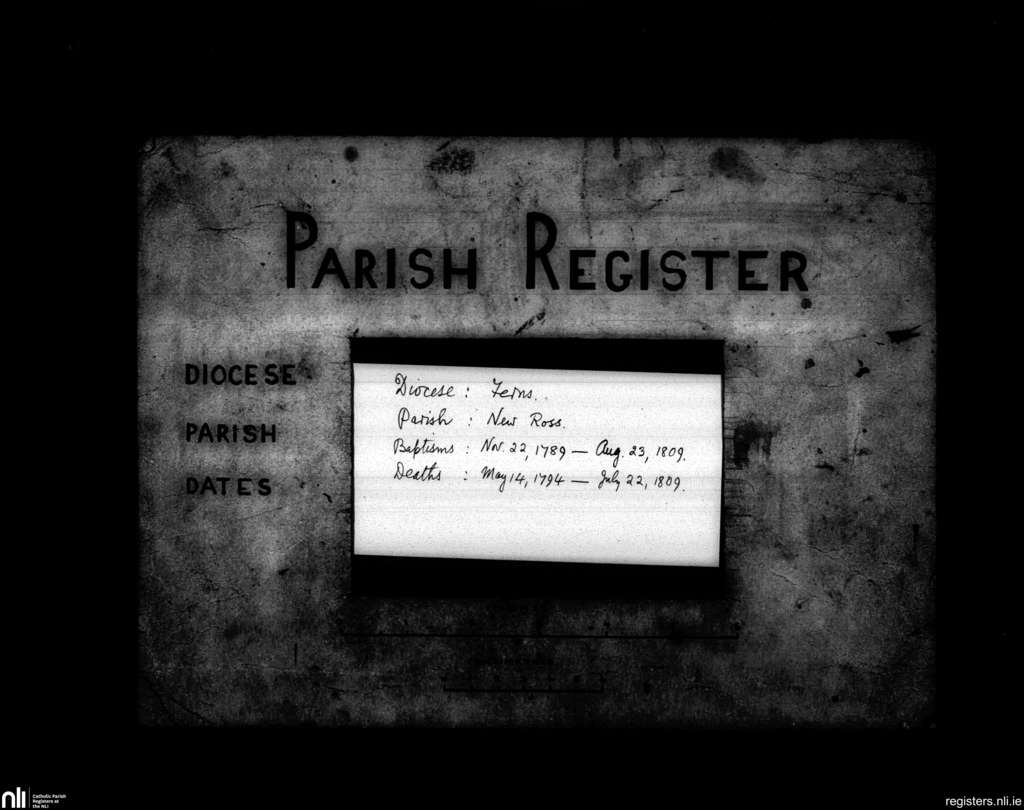 PARISH REGISTER
DIOCESE
PARISH
DATES
Diocese : Ferns.
Parish : New Ross.
Baptisms : Nov. 22, 1789 — Aug. 23, 1809.
Deaths : May 14, 1794 — July 22, 1809.
nli
Catholic Parish
Registers at
the NLI
registers.nli.ie